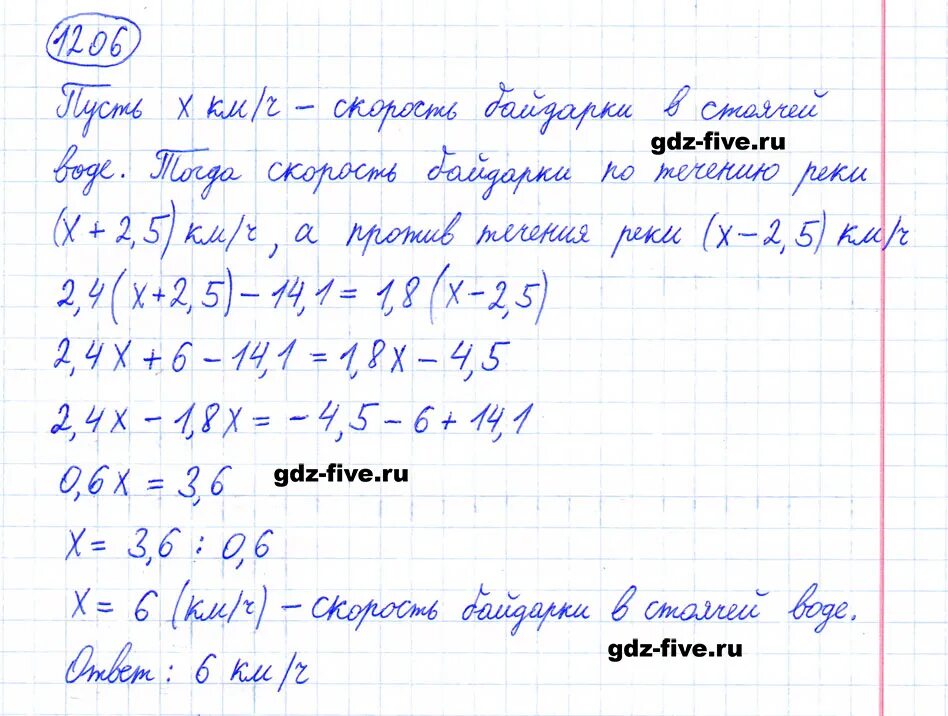 1206
Пусть x км/ч – скорость байдарки в стоячей
gdz-five.ru
воде. Тогда скорость байдарки по течению реки
(x + 2,5) км/ч, а против течения реки (x – 2,5) км/ч
2,4(x+2,5) – 14,1 = 1,8(x – 2,5)
2,4x + 6 – 14,1 = 1,8x – 4,5
2,4x – 1,8x = – 4,5 – 6 + 14,1
0,6x = 3,6
gdz-five.ru
x = 3,6 : 0,6
x = 6 (км/ч) – скорость байдарки в стоячей воде.
gdz-five.ru
Ответ: 6 км/ч